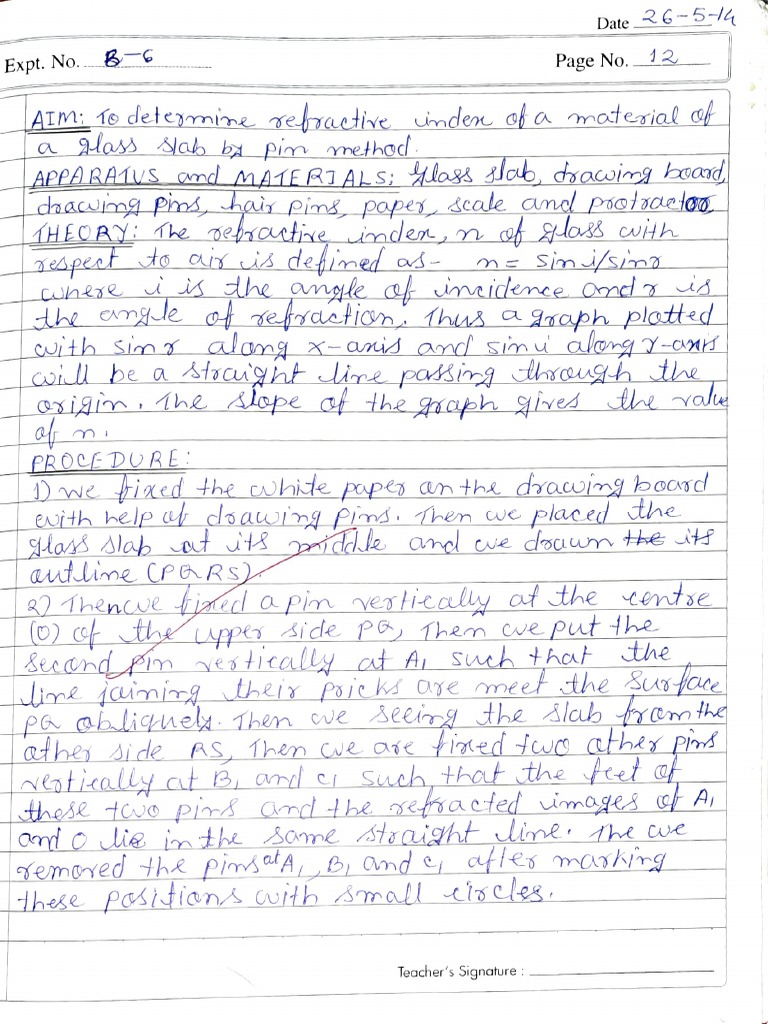 Date 26-5-14
Expt. No. B-6
Page No. 12
AIM: To determine refractive index of a material of
a glass slab by pin method.
APPARATUS and MATERIALS: Glass slab, drawing board,
drawing pins, hair pins, paper, scale and protractor
THEORY: The refractive index, n of glass with
respect to air is defined as- n= sini/sinr
where i is the angle of incidence and r is
the angle of refraction. Thus a graph plotted
with sinr along x-axis and sini along Y-axis
will be a straight line passing through the
origin. The slope of the graph gives the value
of n.
PROCEDURE:
1) we fixed the white paper on the drawing board
with help of drawing pins. Then we placed the
glass slab at its middle and we drawn the its
outline (PQRS).
2) Then we fixed a pin vertically at the centre
(O) of the upper side PQ, Then we put the
second pin vertically at A1 such that the
line joining their pricks are meet the surface
PQ obliquely. Then we seeing the slab from the
other side RS, Then we are fixed two other pins
vertically at B1 and C1 such that the feet of
these two pins and the refracted images of A1
and O lie in the same straight line. The we
removed the pins at A1, B1 and C1 after marking
these positions with small circles.
Teacher's Signature :